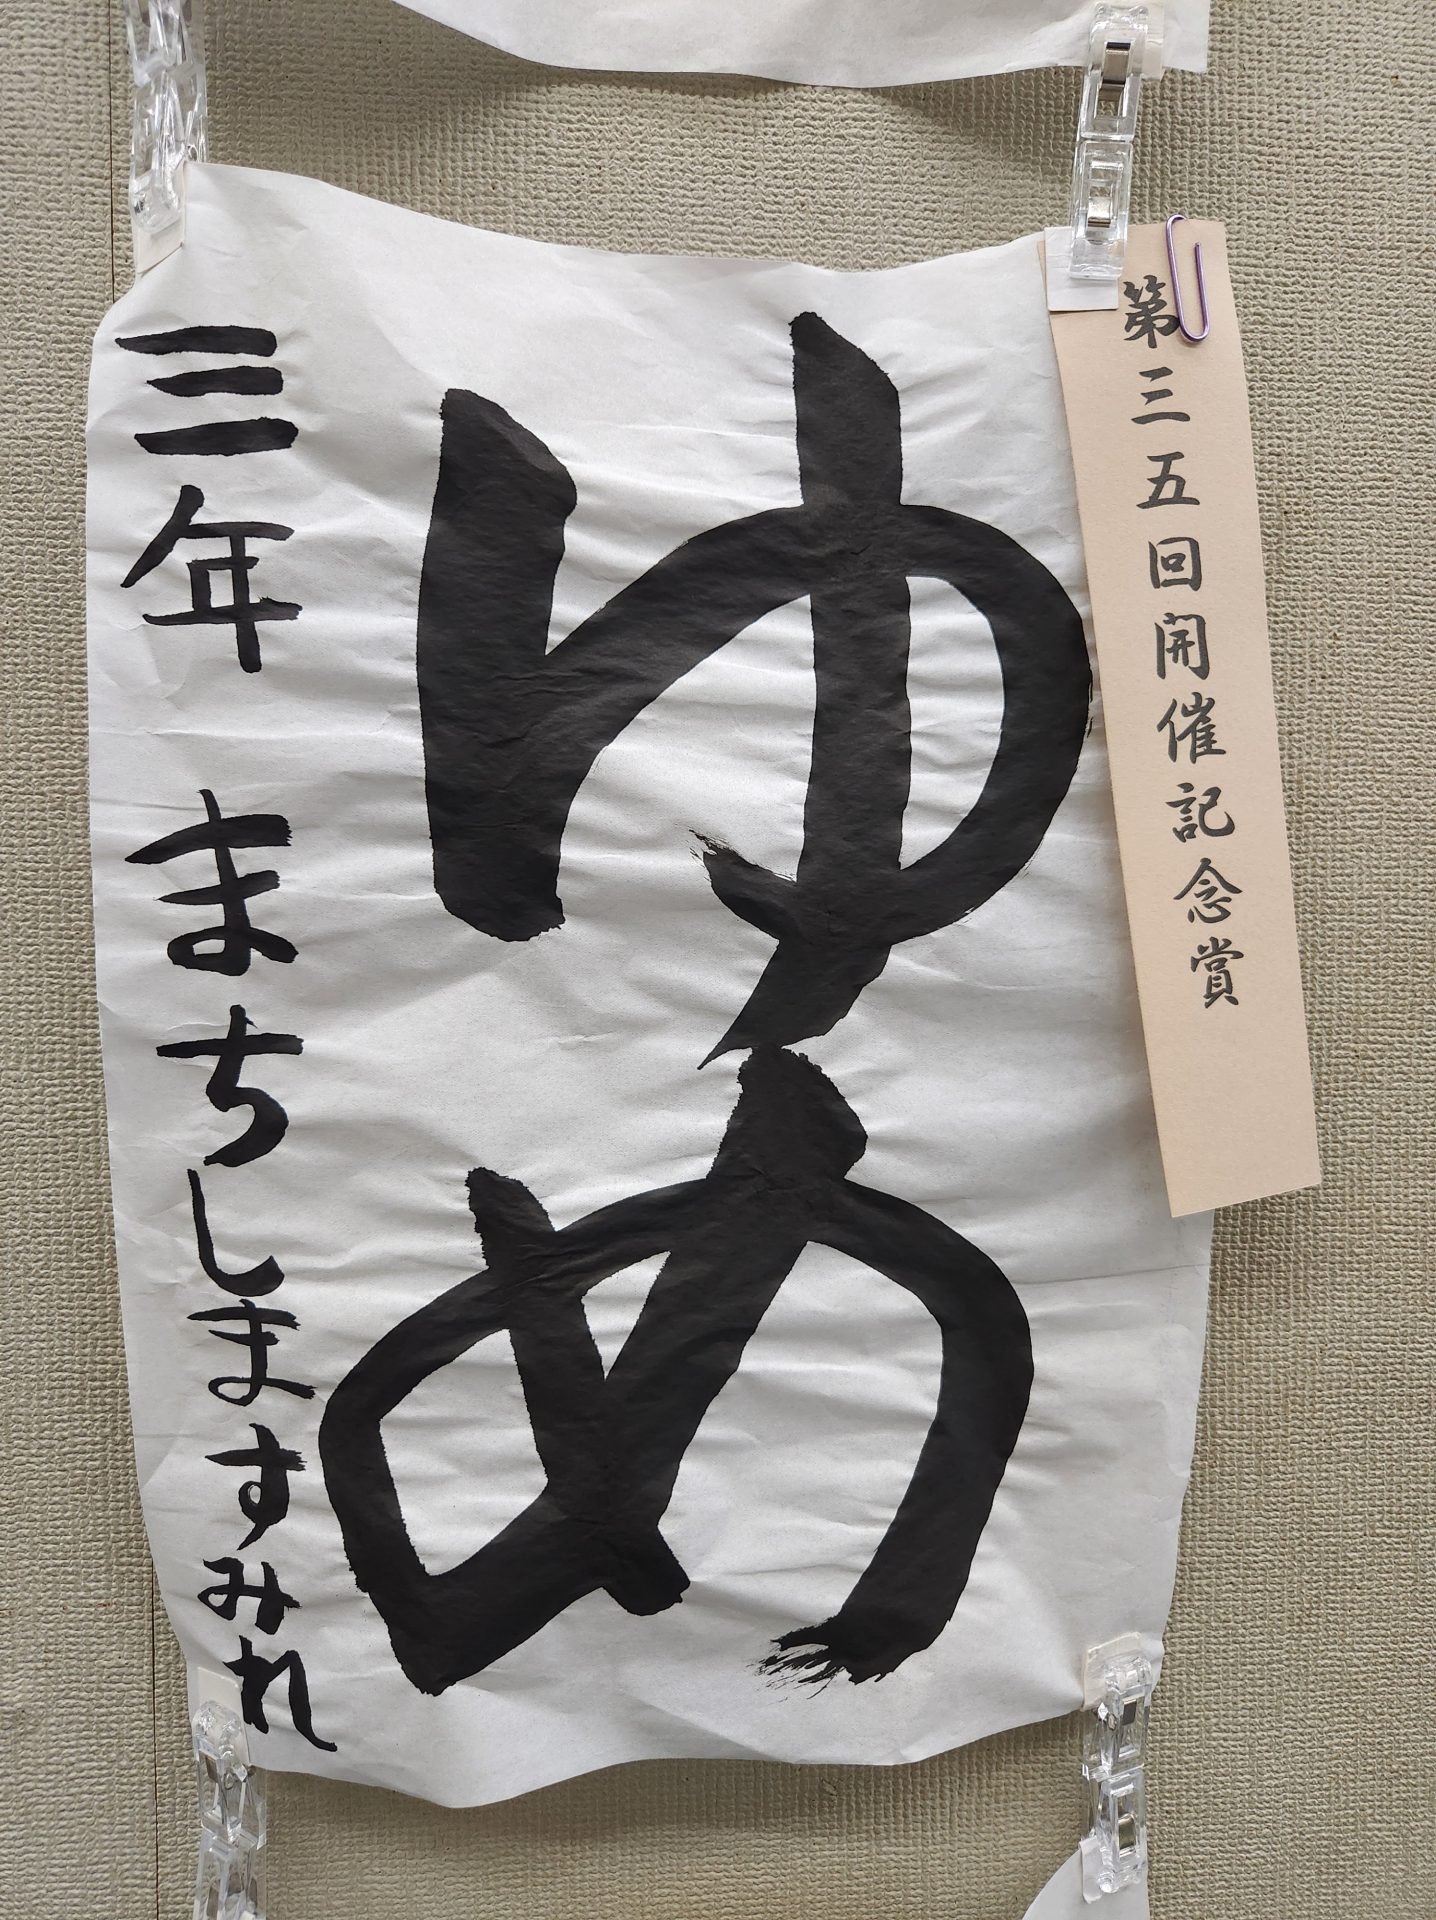 第三五回開催記念賞
ゆめ
三年 まちしますみれ